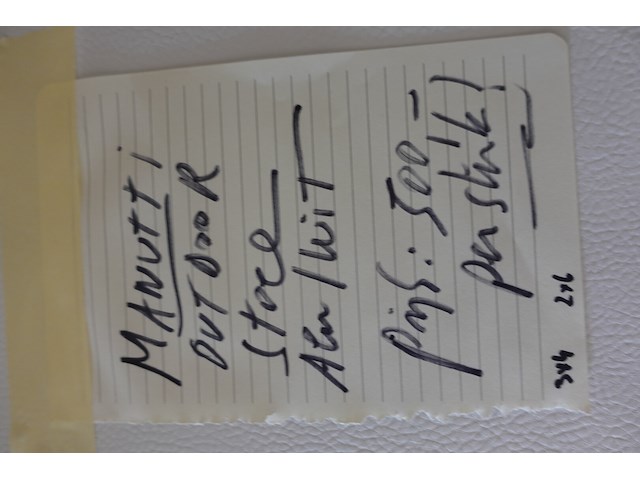 MANUTTI
OUTDOOR
Stoel
Alu/WIT
Prijs: 500-
per stuk!
3x4 2x6